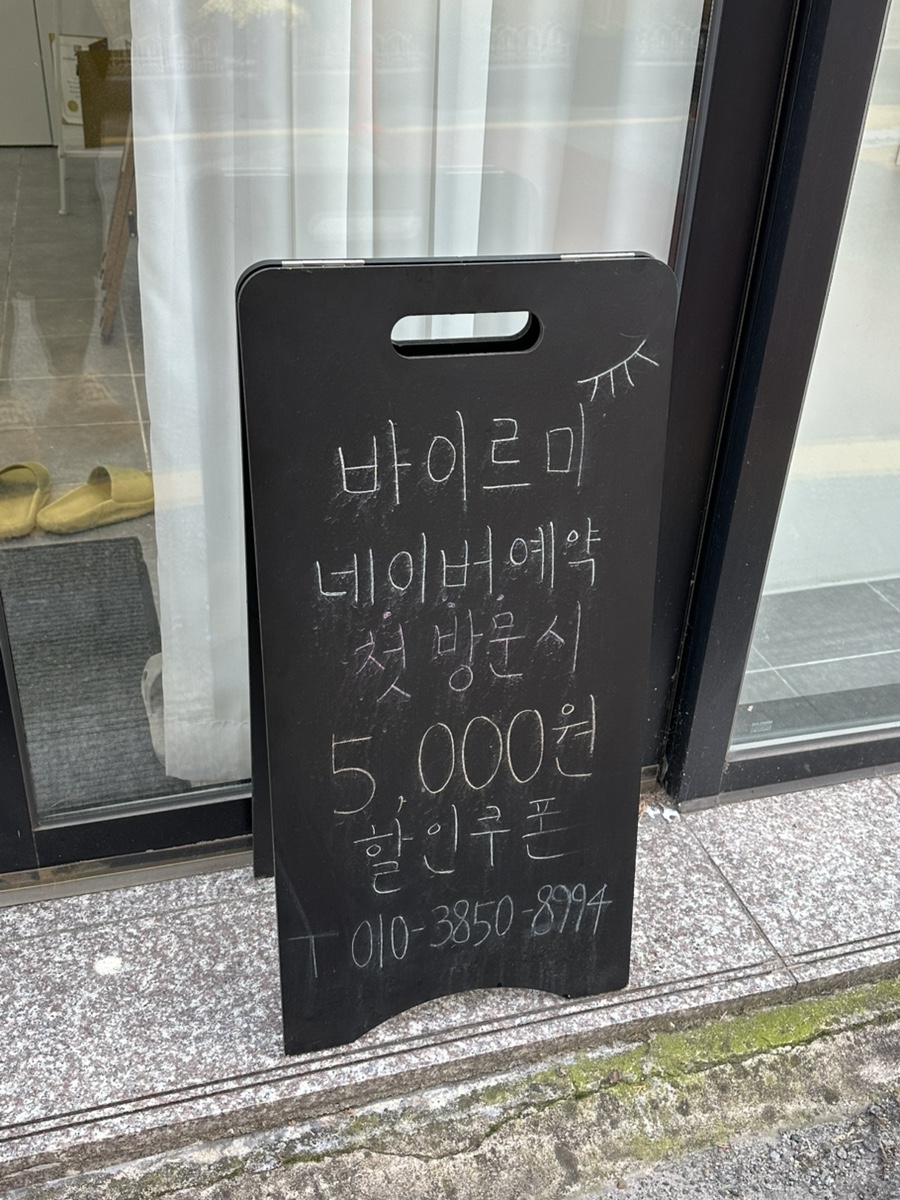 바이르미
네이버예약
첫 방문시
5,000원
할인쿠폰
T 010-3850-8994